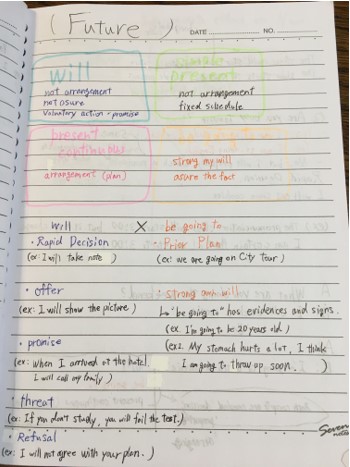 (Future)
DATE
NO.
will
not arrangement
not asure
voluntary action - promise
simple
present
not arrangement
fixed schedule
present
continuous
arrangement (plan)
be going to
strong my will
asure the fact
will X be going to
· Rapid Decision · Prior Plan
(ex: I will take note) (ex: we are going on City tour)
· offer · strong own will
(ex: I will show the picture.) ↳ "be going to" has evidences and signs.
(ex. I'm going to be 20 years old.)
· promise (ex2. My stomach hurts a lot, I think
(ex: when I arrived at the hotel. I am going to throw up soon. )
I will call my family)
· threat
(ex: If you don't study, you will fail the test.)
· Refusal
(ex: I will not agree with your plan.)
Seven